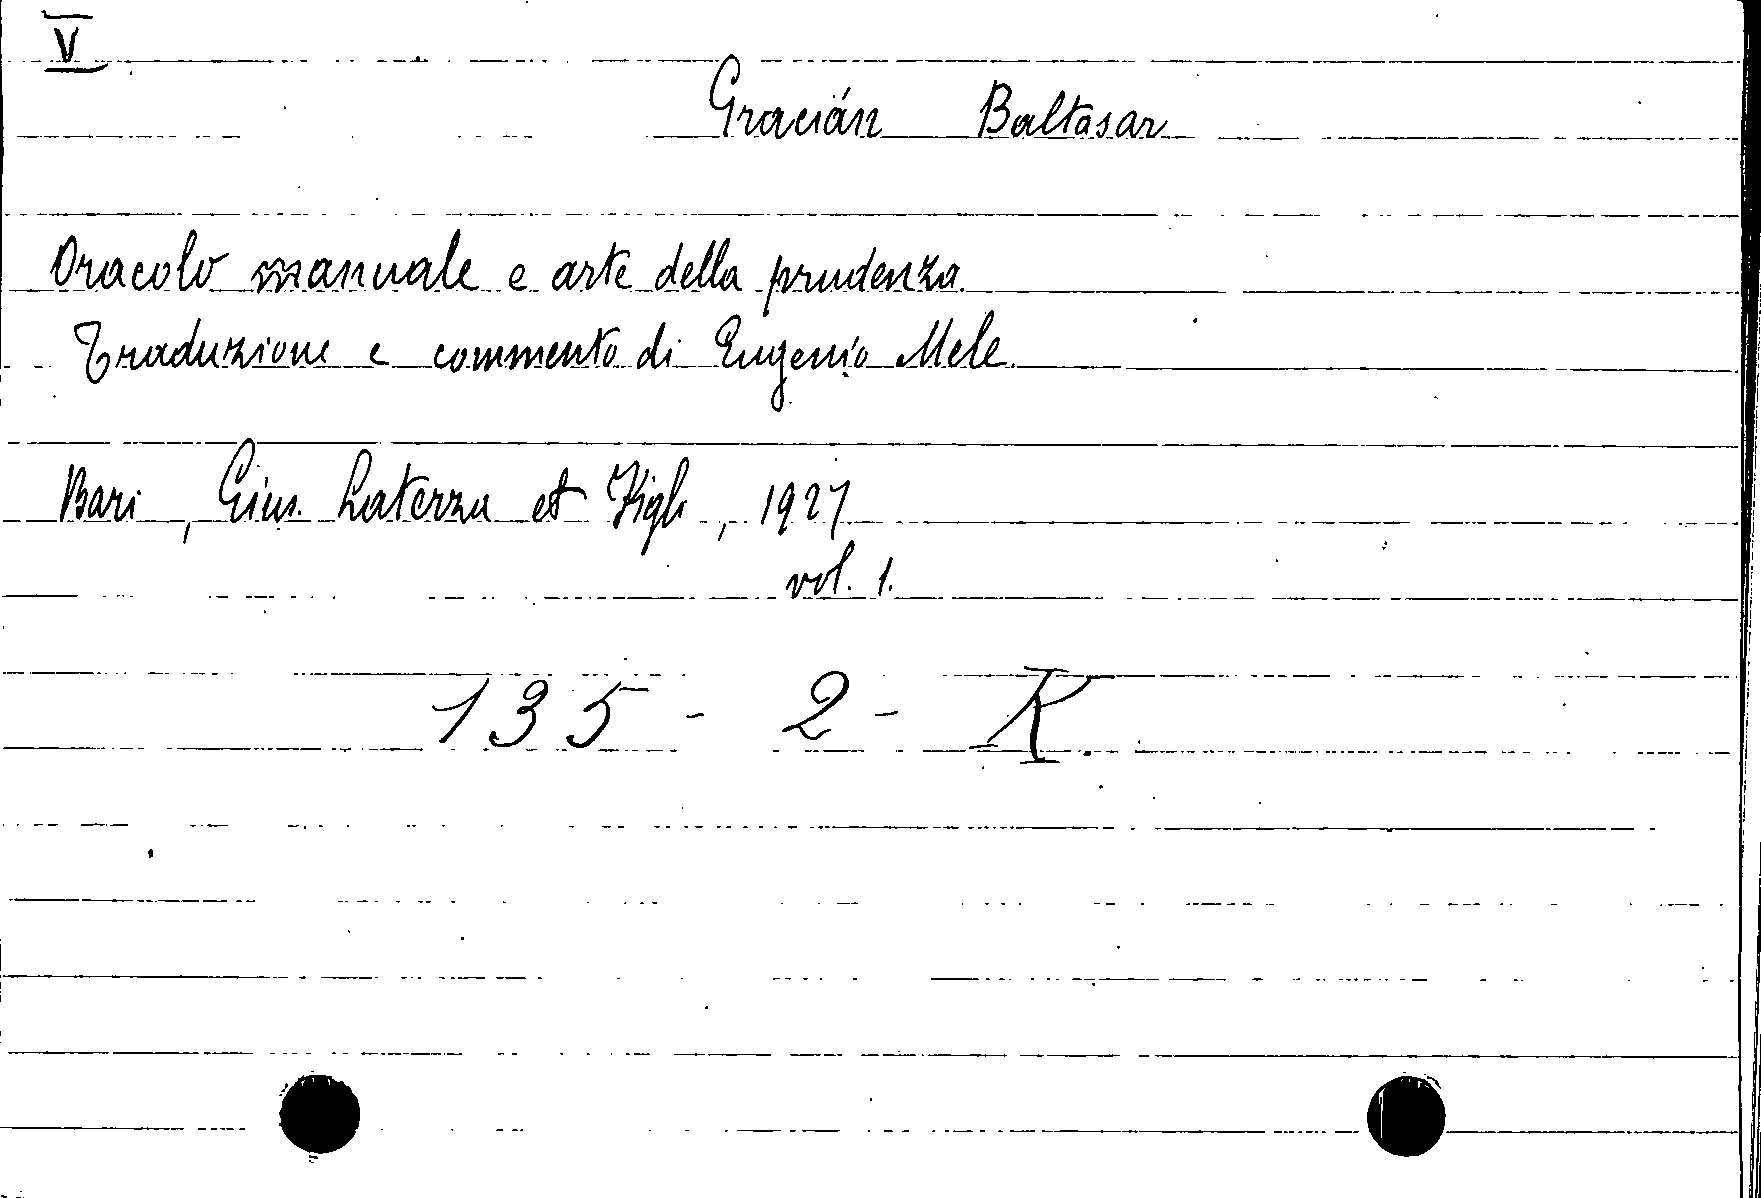 V
Gracián Baltasar
Oracolo manuale e arte della prudenza.
Traduzione e commento di Eugenio Mele.
Bari, Gius. Laterza et Figli, 1927
vol. 1.
135 - 2 - K.